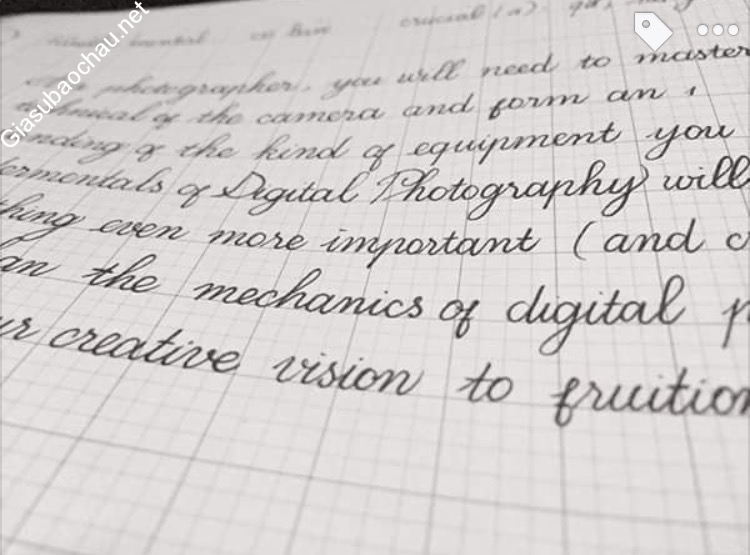 crucial (a).
photographer, you will need to master
technical of the camera and form an
nding of the kind of equipment you
ermentals of Digital Photography will
thing even more important (and c
an the mechanics of digital p
ur creative vision to fruition
Giasubaochau.net